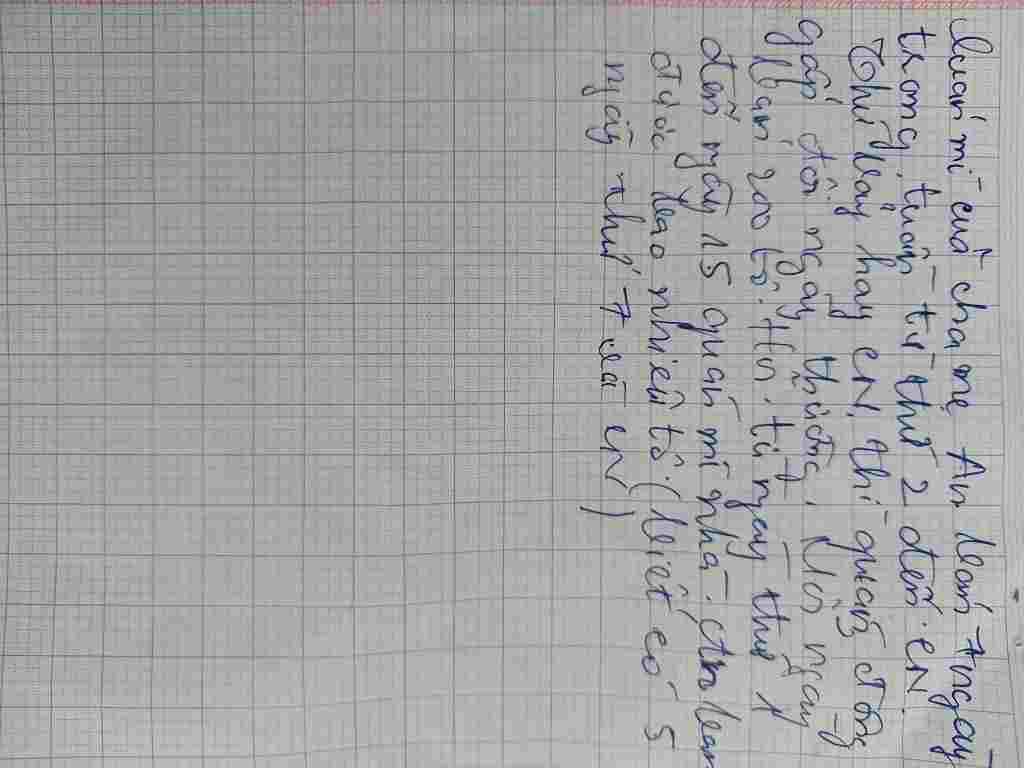 Quán mì của cha mẹ An bán 7 ngày
trong tuần từ thứ 2 đến CN.
Thứ bảy hay CN thì quán đông
gấp đôi ngày thường. Mỗi ngày
bán 200 tô. Hỏi từ ngày thứ 1
đến ngày 15 quán mì nhà An bán
được bao nhiêu tô. (biết có 5
ngày thứ 7 và CN)